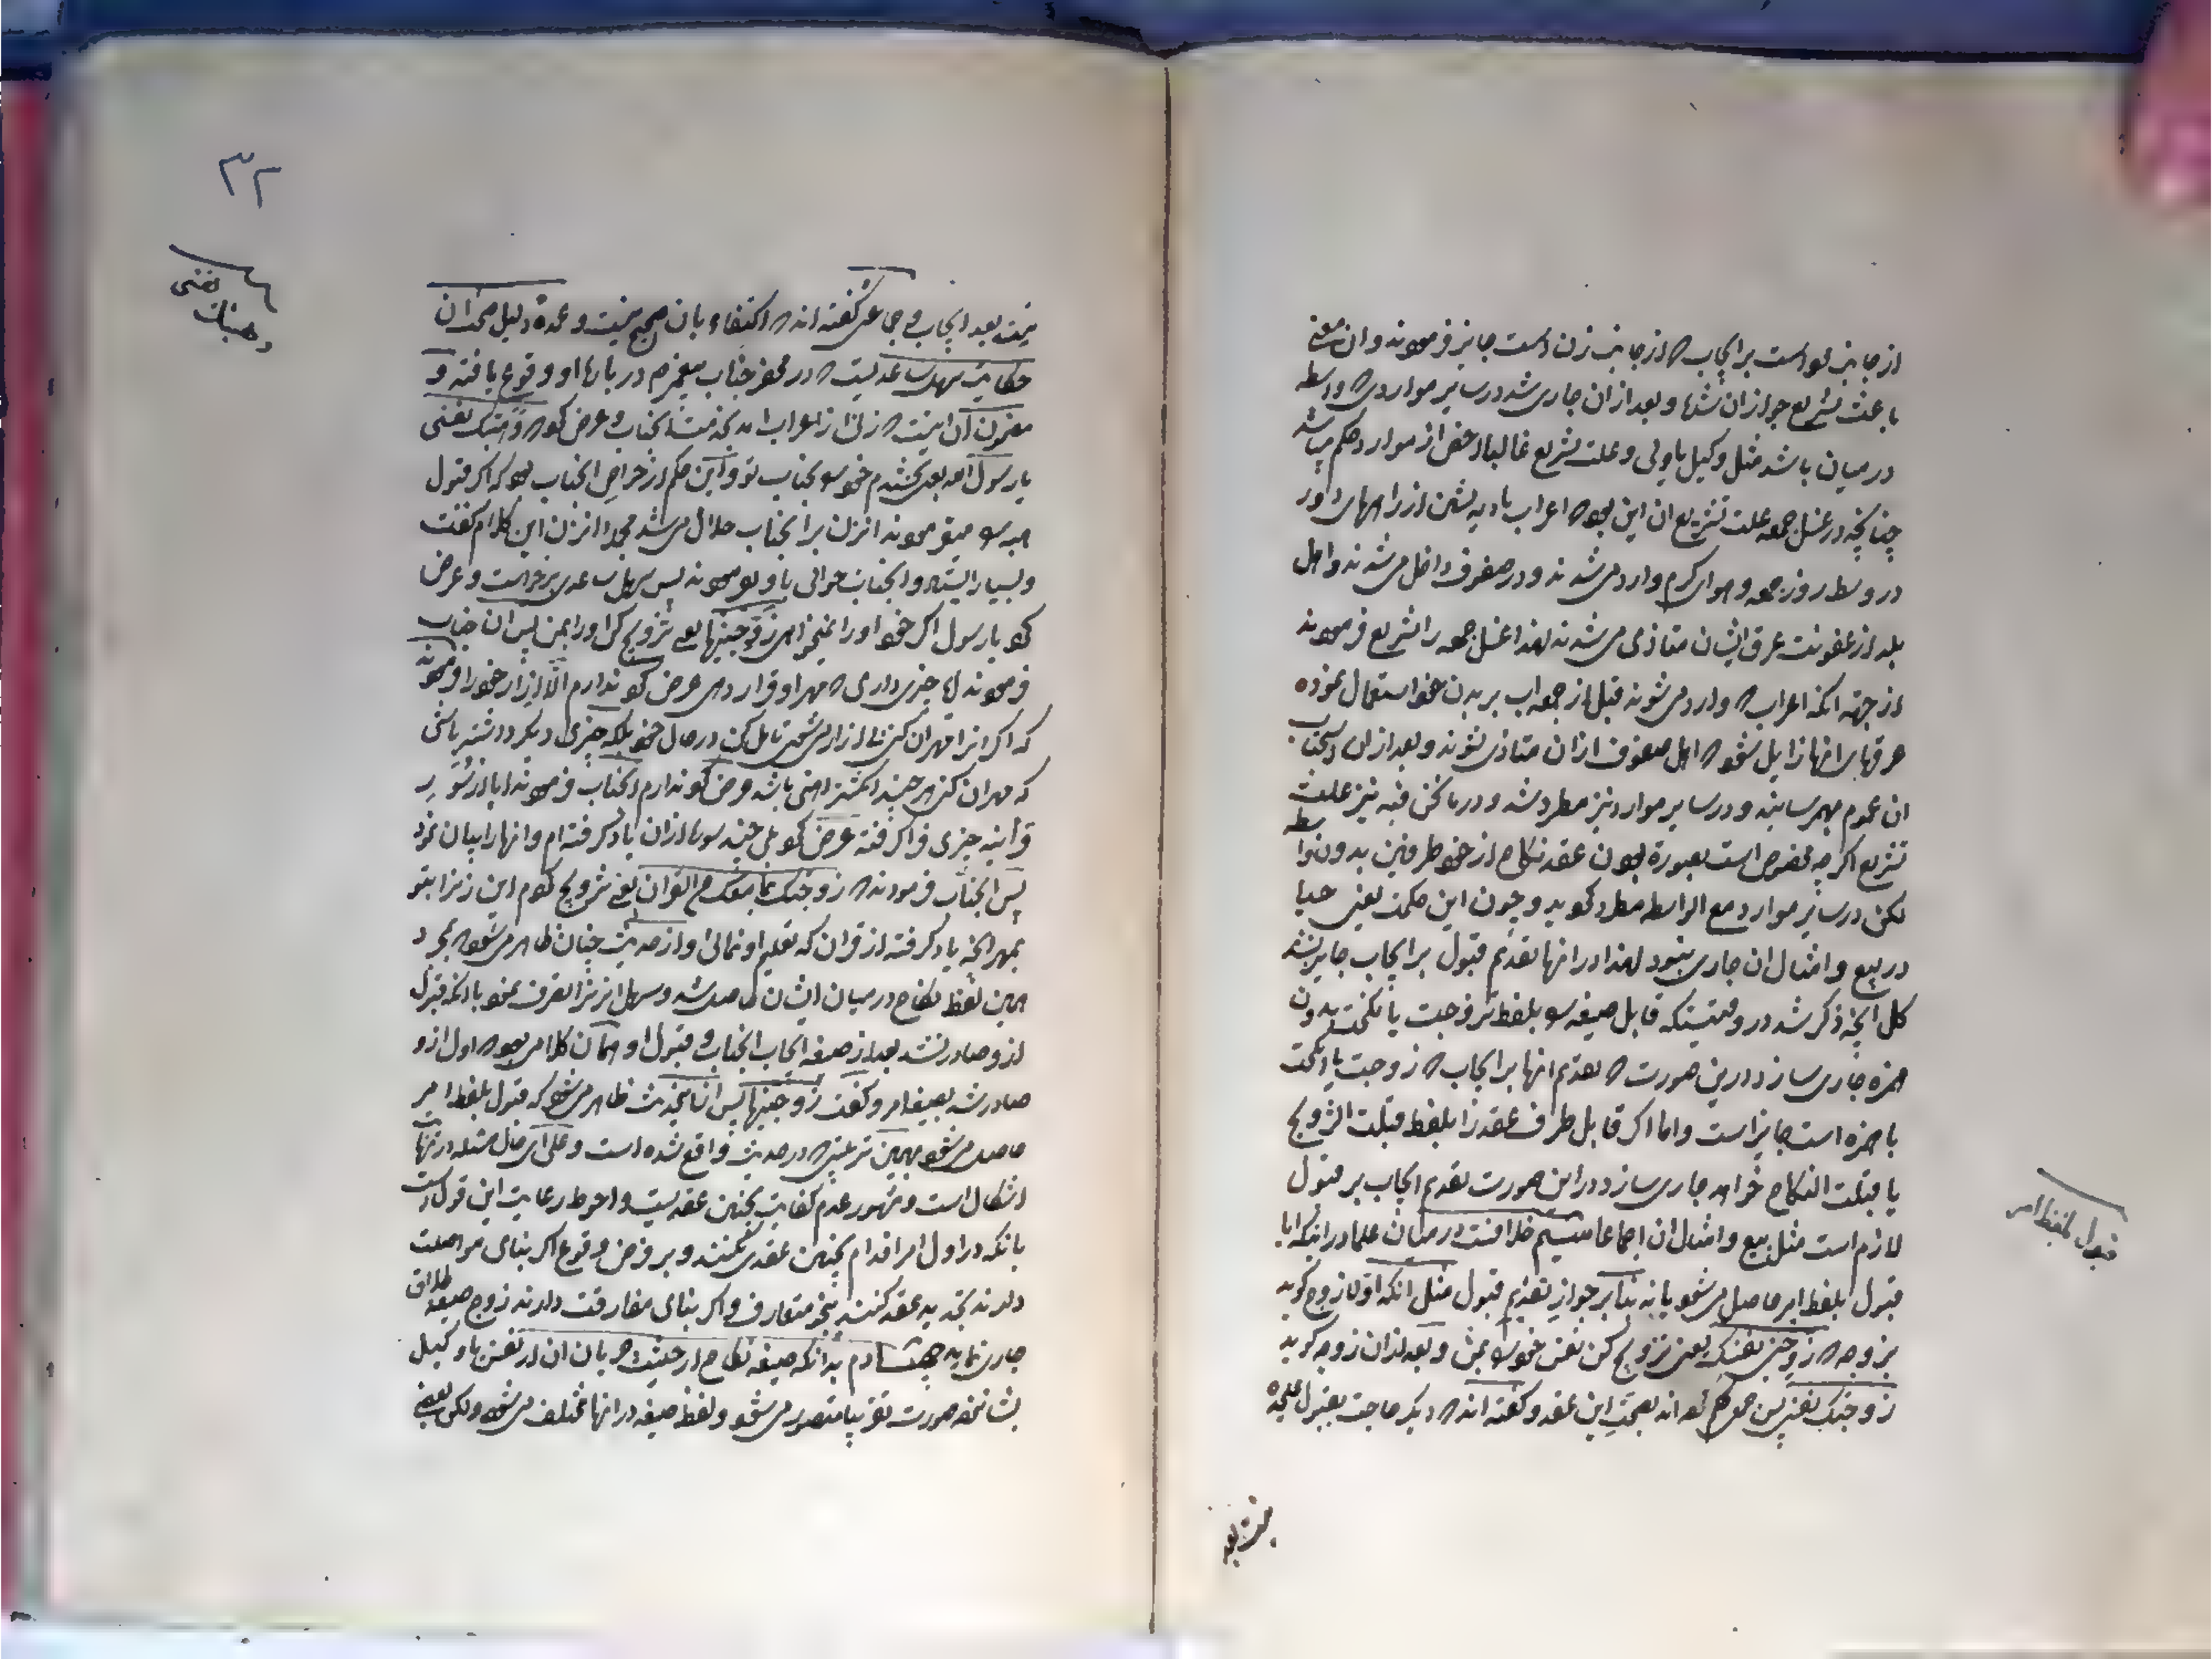 از جانب او است بر ایجاب که از جانب زن است جایز فرموده و ان معنی
باعث تشریع جواز ان شد و بعد از ان جاری شد در سایر مواردی که واسطه
در میان باشد مثل وکیل یا ولی و علت تشریع غالبا اخص از موارد حکم میباشد
چنانچه در غسل جمعه علت تشریع ان این بود که اعراب بادیه نشین از راههای دور
در وسط روز جمعه و هوای گرم وارد می شدند و در صفوف داخل می شدند و اهل
بلد از عفونت عرق ایشان متاذی می شدند لهذا غسل جمعه را تشریع فرمودند
از جهة انکه اعراب که وارد می شوند قبل از جمعه اب بر بدن خود استعمال نموده
عرقهای انها زایل شود که اهل صفوف از ان متاذی نشوند و بعد از ان استحباب
ان عموم بهم رسانید و در سایر موارد نیز مطرد شد و در ما نحن فیه نیز علت
تشریع اگر چه مخصوص است بصورة بودن عقد نکاح از خود طرفین بدون واسطه
لکن در سایر موارد مع الواسطه مطرد گردید و چون این حکمت یعنی حیا
در بیع و امثال ان جاری نبود لهذا در انها تقدیم قبول بر ایجاب جایز نشد
کل انچه ذکر شد در وقتیستکه قابل صیغه را بلفظ تزوجت یا نکحت بدون
همزه جاری سازد در این صورت که تقدیم انها بر ایجاب که زوجت یا انکحت
با همزه است جایز است و اما اگر قابل طرف عقد را بلفظ قبلت التزویج
یا قبلت النکاح خواهد جاری سازد در این صورت تقدیم ایجاب بر قبول
لازم است مثل بیع و امثال ان اجماعا خلافست در میان علما در اینکه ایا
قبول بلفظ امر حاصل می شود یا نه بنا بر جواز تقدیم قبول مثل انکه اولا زوج گوید
بزوجه که زوجنی نفسک یعنی تزویج کن نفس خود را بمن و بعد از ان زوجه گوید
زوجتک نفسی پس جمعی قائل شده اند بصحت این عقد و گفته اند که دیگر حاجت بقبول علیحده
قبول بلفظ امر
نیست بعد
۳۲
نیست بعد ایجاب و جماعتی گفته اند که اکتفاء بان صحیح نیست و عمده دلیل صحت ان
حکایت سهل ساعدیست که در محضر جناب پیغمبر در باره او وقوع یافته و
مضمون ان اینست که زنی از اعراب امد بخدمت انجناب و عرض کرد که وهبتک نفسی
یا رسول الله یعنی بخشیدم خود را بجناب تو و این حکم از خواص انجناب بود که اگر قبول
هبه را میفرمودند انزن بر انجناب حلال می شد مجددا انزن این کلام گفت
و بسیار ایستاد و انجناب جوابی باو نفرمودند پس سهل ساعدی برخواست و عرض
کرد یا رسول اگر خود او را نمیخواهی زوجنیها یعنی تزویج کن او را بمن پس ان جناب
فرمودند ایا چیزی داری که مهر او قرار دهی عرض کرد ندارم الا ازار خود را فرمودند
که اگر انرا مهر ان کنی بی ازار می شوی تامل کن در حال خود بلکه چیزی دیگر داشته باشی
که مهر ان کنی هر چند انگشتر اهنی باشد عرض کرد ندارم انجناب فرمودند ایا از سور
قرآنیه چیزی فرا گرفته عرض کرد بلی چند سوره از ان یاد گرفته ام و انها را بیان نمود
پس انجناب فرمودند که زوجتک بما معک من القران یعنی تزویج کردم این زنرا بتو
بمهر انچه یاد گرفته از قران که تعلیم او نمائی و از حدیث چنان ظاهر می شود که بمجرد
همین لفظ نکاح در میان ایشان حاصل شد و سهل انزنرا تصرف نمود با انکه قبول
از و صادر نشد بعد از صیغه ایجاب انجناب و قبول او همان کلامی بود که اول از و
صادر شد بصیغه امر و گفت زوجنیها پس از این حدیث ظاهر می شود که قبول بلفظ امر
حاصل می شود بهمین ترتیبی که در حدیث واقع شده است و علی ای حال مسئله در نهایت
اشکال است و مشهور عدم کفایت بچنین عقدیست و احوط رعایت این قول است
بانکه در اول امر اقدام بچنین عقدی نکنند و بر فرض وقوع اگر بنای مواصلت
دارند تجدید عقد کنند بنحو متعارف و اگر بنای مفارقت دارند زوج صیغه طلاق
جاری نماید بدانکه صیغه نکاح از حیثیت جریان ان از نفس یا وکیل
بشانزده صورت تقریبا متصور می شود و لفظ صیغه در انها مختلف می شود ولکن بعضی
وهبتک نفسی